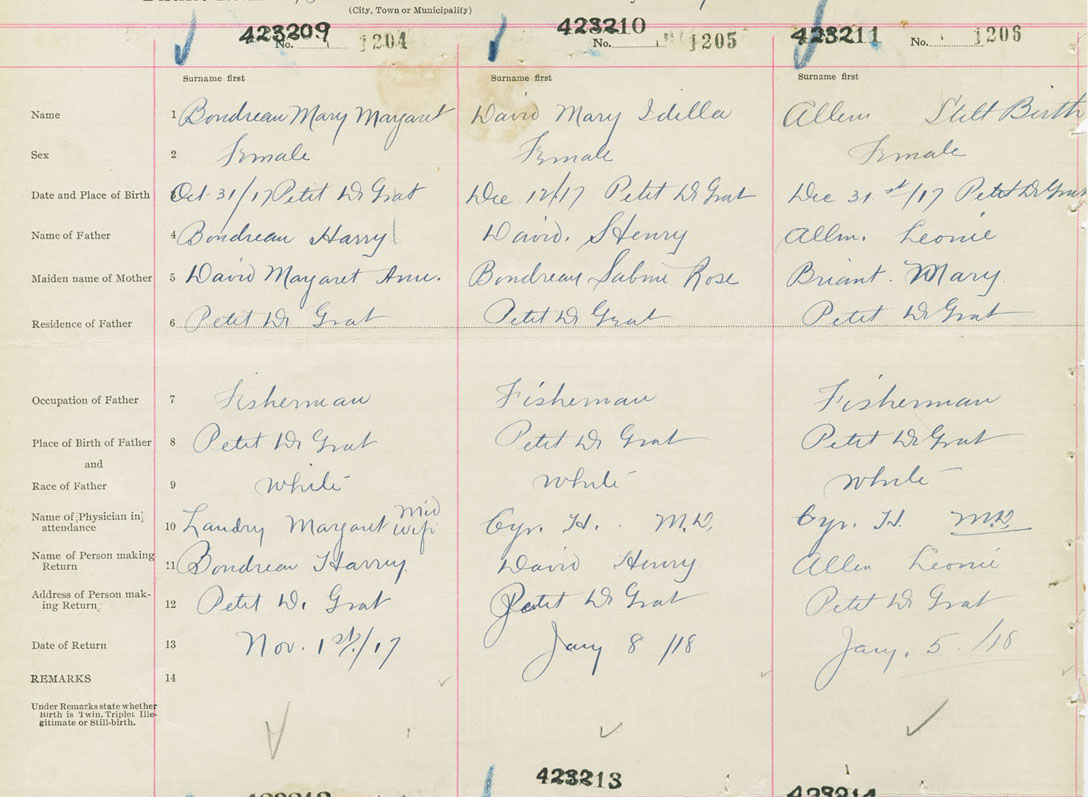 (City, Town or Municipality)
423209 423210 423211
No. 1204 No. 1205 No. 1206
Surname first Surname first Surname first
Name 1 Bondreau Mary Margaret David Mary Idilla Allen Still Birth
Sex 2 Female Female Female
Date and Place of Birth 3 Oct 31/17 Petit De Grat Dec 12/17 Petit De Grat Dec 31st/17 Petit De Grat
Name of Father 4 Bondreau Harry David. Henry Allen. Leonie
Maiden name of Mother 5 David Margaret Ann. Bondreau Sabine Rose Briant. Mary
Residence of Father 6 Petit De Grat Petit De Grat Petit De Grat
Occupation of Father 7 Fisherman Fisherman Fisherman
Place of Birth of Father 8 Petit De Grat Petit De Grat Petit De Grat
and
Race of Father 9 White White White
Name of [Physician in] attendance 10 Landry Margaret Mid wife Cyr. H. M.D. Cyr. H. M.D.
Name of Person making Return 11 Bondreau Harry David Henry Allen Leonie
Address of Person making Return 12 Petit D. Grat Petit De Grat Petit De Grat
Date of Return 13 Nov. 1st/17 Jany 8/18 Jany. 5/18
REMARKS 14
Under Remarks state whether
Birth is Twin, Triplet Ille-
gitimate or Still-birth.
423213